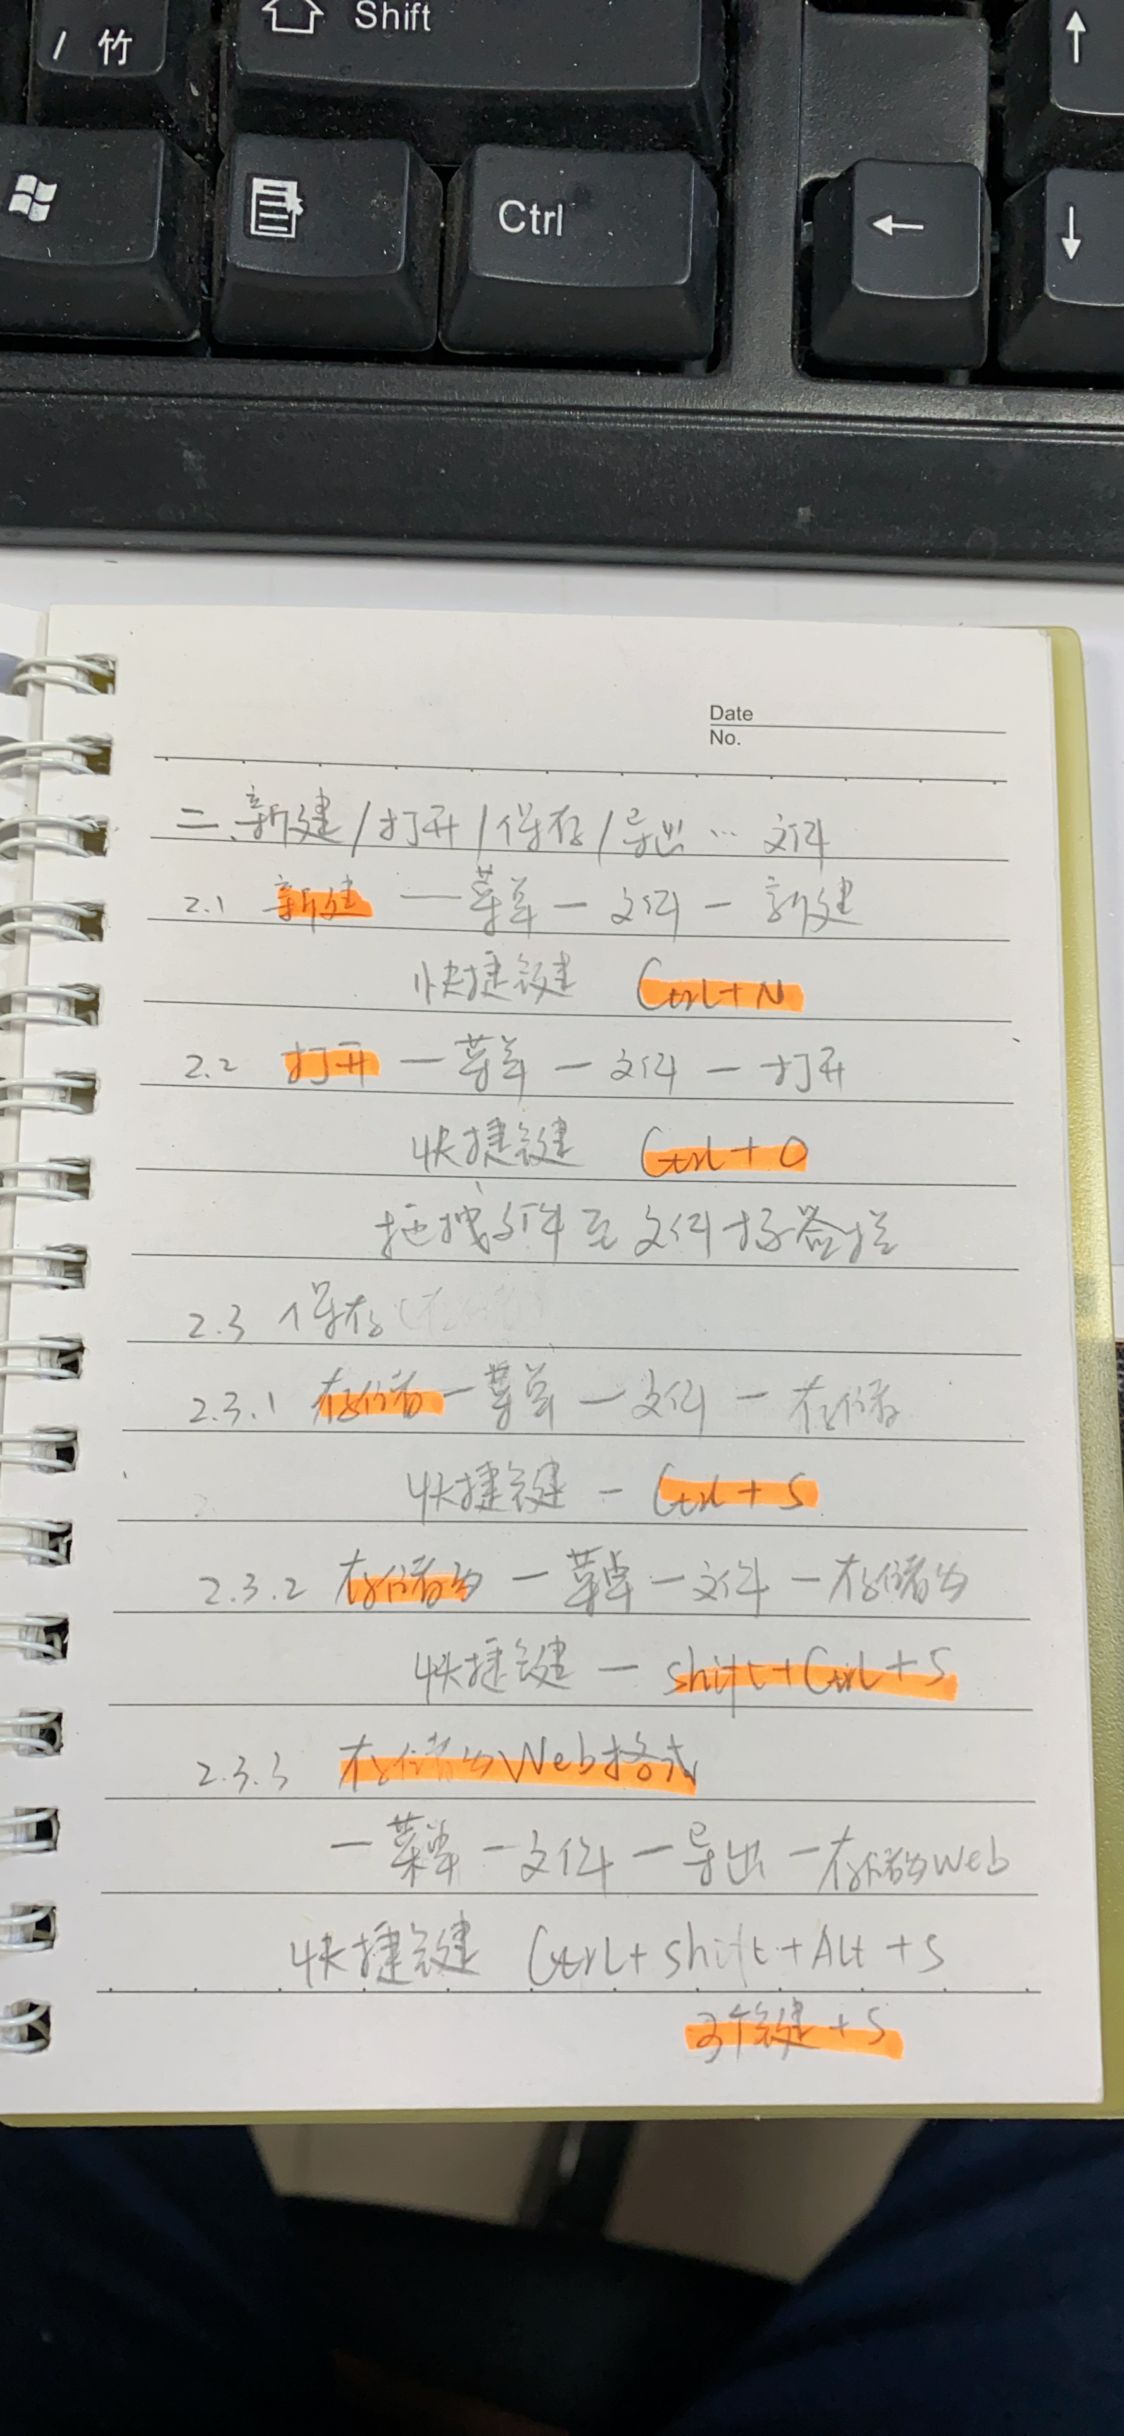 Shift
/ 竹
Ctrl
↑
←
↓
Date
No.
二、新建/打开/保存/导出… 文件
2.1 新建 — 菜单 — 文件 — 新建
快捷键 Ctrl+N
2.2 打开 — 菜单 — 文件 — 打开
快捷键 Ctrl+O
拖拽文件至文件标签栏
2.3 保存
2.3.1 存储 — 菜单 — 文件 — 存储
快捷键 — Ctrl+S
2.3.2 存储为 — 菜单 — 文件 — 存储为
快捷键 — shift+Ctrl+S
2.3.3 存储为Web格式
— 菜单 — 文件 — 导出 — 存储为Web
快捷键 Ctrl+shift+Alt+S
3个键+S